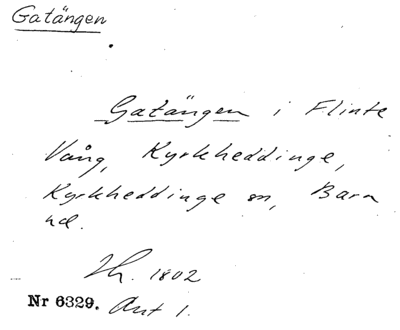 Gatängen
Gatängen i Flinte
Vång, Kyrkheddinge,
Kyrkheddinge sn, Bara
hd.
Lh. 1802
Nr 6329. Akt 1.